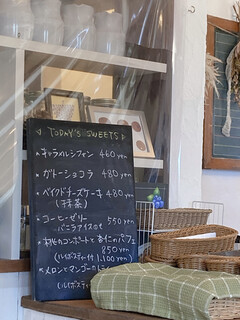 TODAY'S SWEETS
★キャラメルシフォン 460 yen
★ガトーショコラ 480 yen
★ベイクドチーズケーキ 480 yen
(抹茶)
★コーヒーゼリー 550 yen
バニラアイスのせ
★桃のコンポートと杏仁のパフェ
850 yen
(ルイボスティー付) 1,100 yen
★メロンとマンゴーの
(ルイボスティー付)